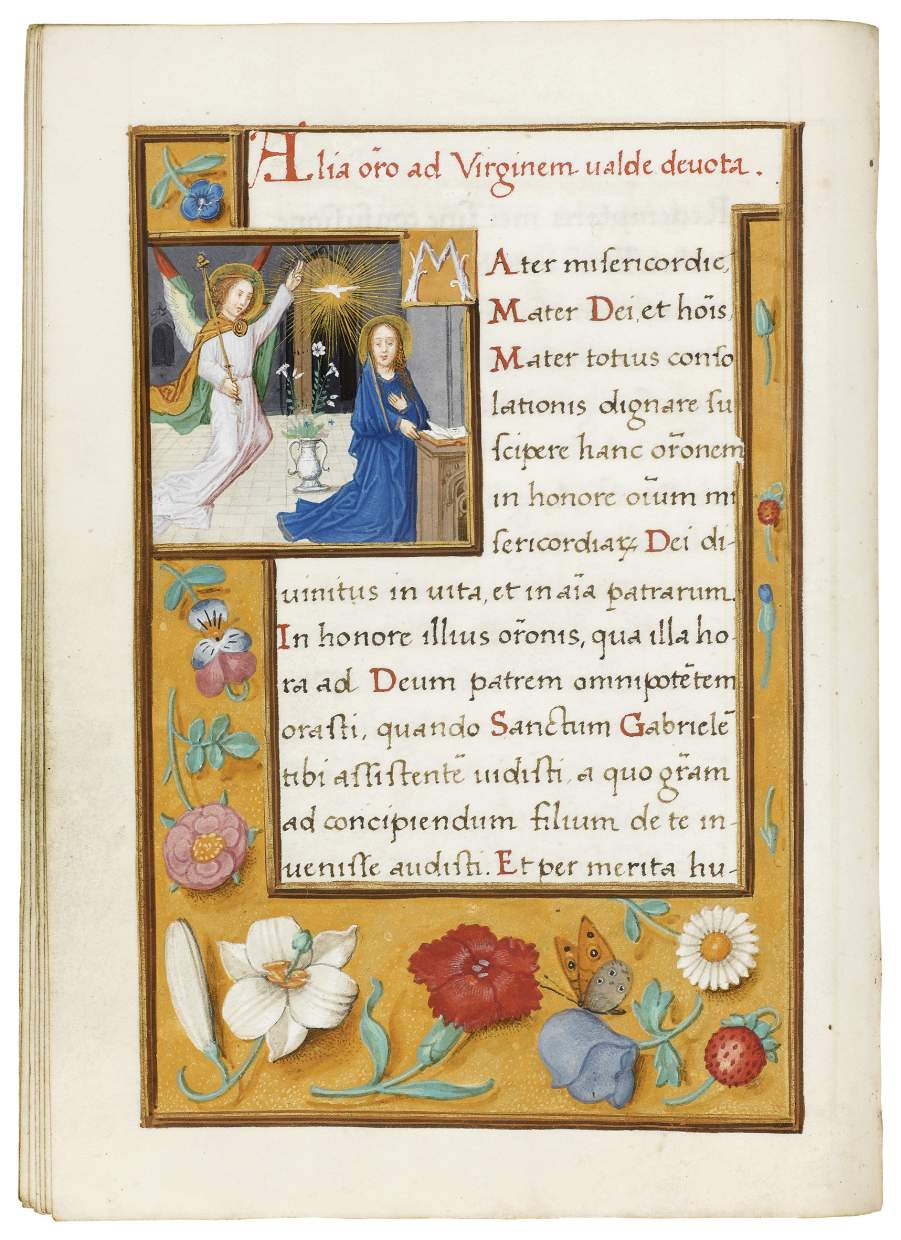 Alia or̃o ad Virginem ualde deuota.
M
Ater misericordie,
Mater Dei, et hoĩs,
Mater totius conso
lationis dignare su
scipere hanc or̃onem
in honore oĩum mi
sericordiarꝝ Dei di-
uinitus in uita, et in aĩa patrarum.
In honore illius or̃onis, qua illa ho-
ra ad Deum patrem omnipotẽtem
orasti, quando Sanctum Gabrielẽ
tibi assistentẽ uidisti, a quo gr̃am
ad concipiendum filium de te in-
uenisse audisti. Et per merita hu-